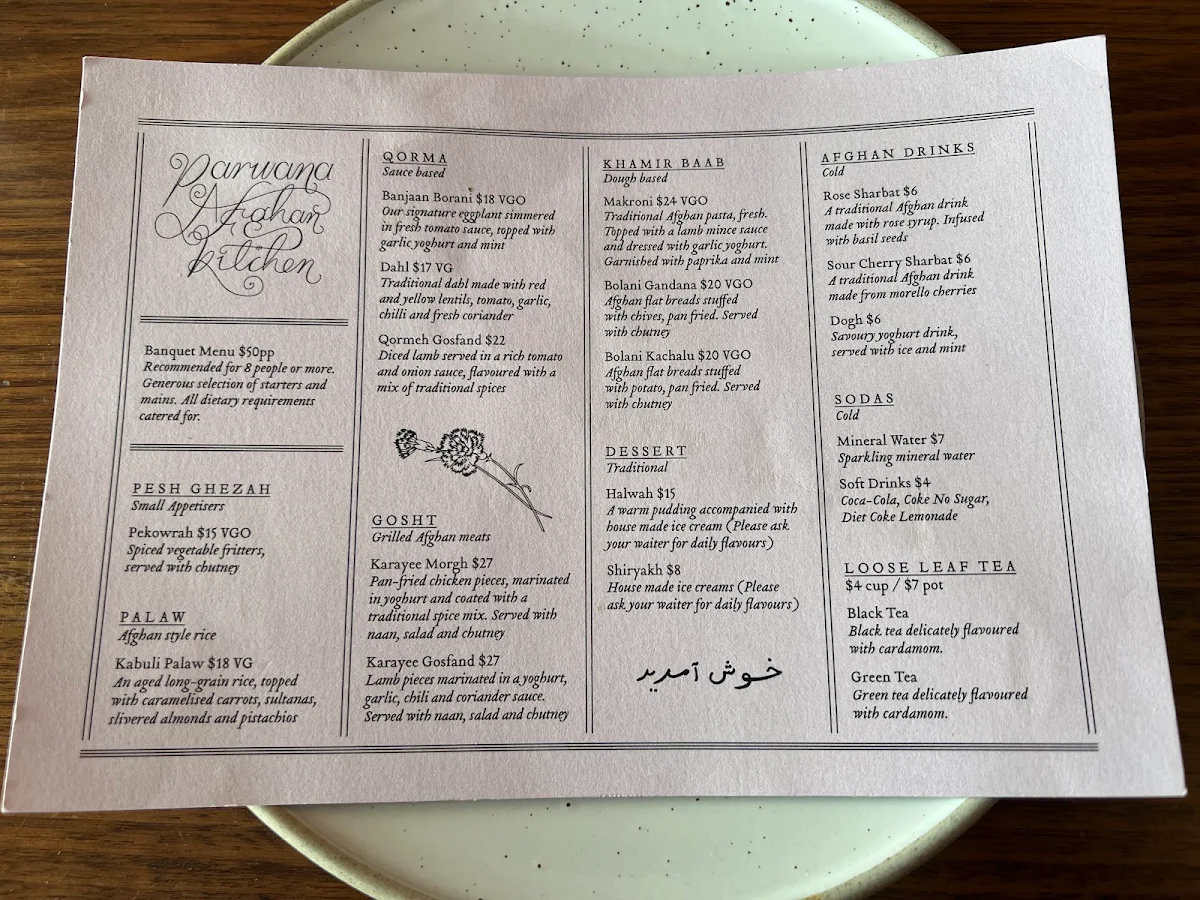 Parwana
Afghan
Kitchen
Banquet Menu $50pp
Recommended for 8 people or more.
Generous selection of starters and
mains. All dietary requirements
catered for.
PESH GHEZAH
Small Appetisers
Pekowrah $15 VGO
Spiced vegetable fritters,
served with chutney
PALAW
Afghan style rice
Kabuli Palaw $18 VG
An aged long-grain rice, topped
with caramelised carrots, sultanas,
slivered almonds and pistachios
QORMA
Sauce based
Banjaan Borani $18 VGO
Our signature eggplant simmered
in fresh tomato sauce, topped with
garlic yoghurt and mint
Dahl $17 VG
Traditional dahl made with red
and yellow lentils, tomato, garlic,
chilli and fresh coriander
Qormeh Gosfand $22
Diced lamb served in a rich tomato
and onion sauce, flavoured with a
mix of traditional spices
GOSHT
Grilled Afghan meats
Karayee Morgh $27
Pan-fried chicken pieces, marinated
in yoghurt and coated with a
traditional spice mix. Served with
naan, salad and chutney
Karayee Gosfand $27
Lamb pieces marinated in a yoghurt,
garlic, chili and coriander sauce.
Served with naan, salad and chutney
KHAMIR BAAB
Dough based
Makroni $24 VGO
Traditional Afghan pasta, fresh.
Topped with a lamb mince sauce
and dressed with garlic yoghurt.
Garnished with paprika and mint
Bolani Gandana $20 VGO
Afghan flat breads stuffed
with chives, pan fried. Served
with chutney
Bolani Kachalu $20 VGO
Afghan flat breads stuffed
with potato, pan fried. Served
with chutney
DESSERT
Traditional
Halwah $15
A warm pudding accompanied with
house made ice cream (Please ask
your waiter for daily flavours)
Shiryakh $8
House made ice creams (Please
ask your waiter for daily flavours)
خوش آمدید
AFGHAN DRINKS
Cold
Rose Sharbat $6
A traditional Afghan drink
made with rose syrup. Infused
with basil seeds
Sour Cherry Sharbat $6
A traditional Afghan drink
made from morello cherries
Dogh $6
Savoury yoghurt drink,
served with ice and mint
SODAS
Cold
Mineral Water $7
Sparkling mineral water
Soft Drinks $4
Coca-Cola, Coke No Sugar,
Diet Coke Lemonade
LOOSE LEAF TEA
$4 cup / $7 pot
Black Tea
Black tea delicately flavoured
with cardamom.
Green Tea
Green tea delicately flavoured
with cardamom.